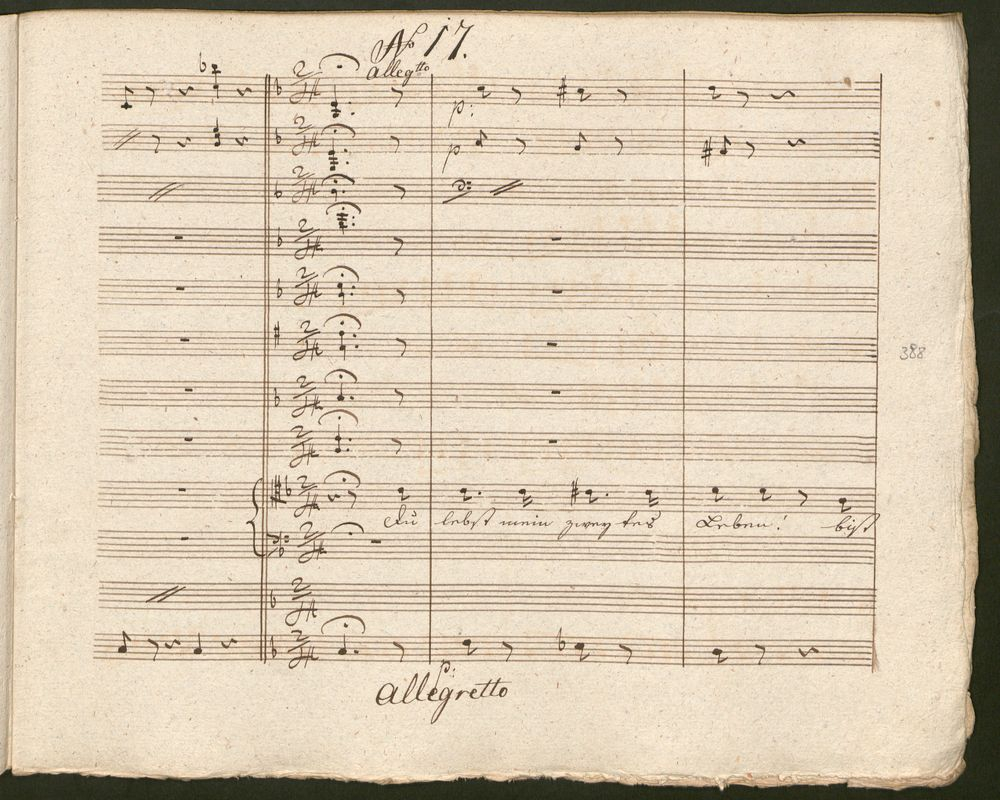 No 17.
Allegtto
p:
p
388
Du lebst mein zwey tes Leben! bist
p:
Allegretto